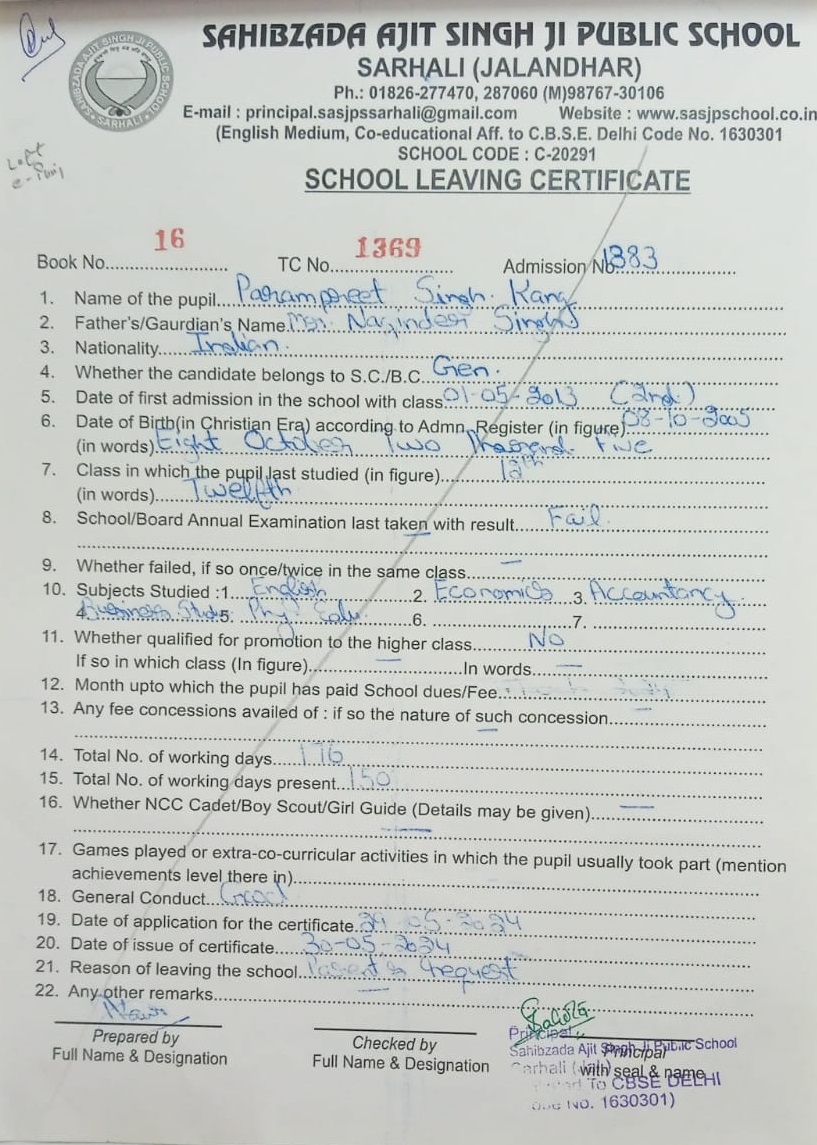 SAHIBZADA AJIT SINGH JI PUBLIC SCHOOL
SARHALI (JALANDHAR)
Ph.: 01826-277470, 287060 (M)98767-30106
E-mail : principal.sasjpssarhali@gmail.com Website : www.sasjpschool.co.in
(English Medium, Co-educational Aff. to C.B.S.E. Delhi Code No. 1630301
SCHOOL CODE : C-20291
SCHOOL LEAVING CERTIFICATE
Book No. 16 TC No. 1369 Admission No. 1383
1. Name of the pupil Parampreet Singh Kang
2. Father's/Gaurdian's Name Mr. Narinder Singh
3. Nationality Indian
4. Whether the candidate belongs to S.C./B.C. Gen.
5. Date of first admission in the school with class 01-05-2013 (2nd)
6. Date of Birth(in Christian Era) according to Admn. Register (in figure) 08-10-2005
(in words) Eight October Two Thousand Five
7. Class in which the pupil last studied (in figure) 12th
(in words) Twelfth
8. School/Board Annual Examination last taken with result Fail
9. Whether failed, if so once/twice in the same class —
10. Subjects Studied :1. English 2. Economics 3. Accountancy
4. Business Stud 5. Phy. Edu. 6. 7.
11. Whether qualified for promotion to the higher class No
If so in which class (In figure) — In words —
12. Month upto which the pupil has paid School dues/Fee
13. Any fee concessions availed of : if so the nature of such concession —
—
14. Total No. of working days 176
15. Total No. of working days present 150
16. Whether NCC Cadet/Boy Scout/Girl Guide (Details may be given) —
—
17. Games played or extra-co-curricular activities in which the pupil usually took part (mention
achievements level there in)
18. General Conduct Good
19. Date of application for the certificate 29-05-2024
20. Date of issue of certificate 30-05-2024
21. Reason of leaving the school Parent's request
22. Any other remarks —
Prepared by Checked by Principal
Full Name & Designation Full Name & Designation (with seal & name
Principal
Sahibzada Ajit Singh Ji Public School
Sarhali
To CBSE DELHI
No. 1630301)